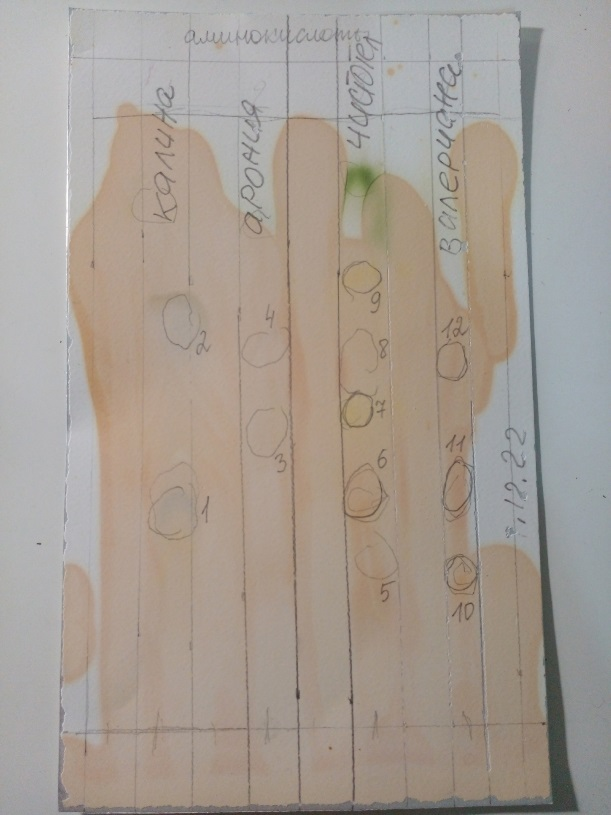 аминокислоты
калина
арония
чистотел
валериана
9
4
12
2
8
7
6
11
3
1
5
10
.12.22